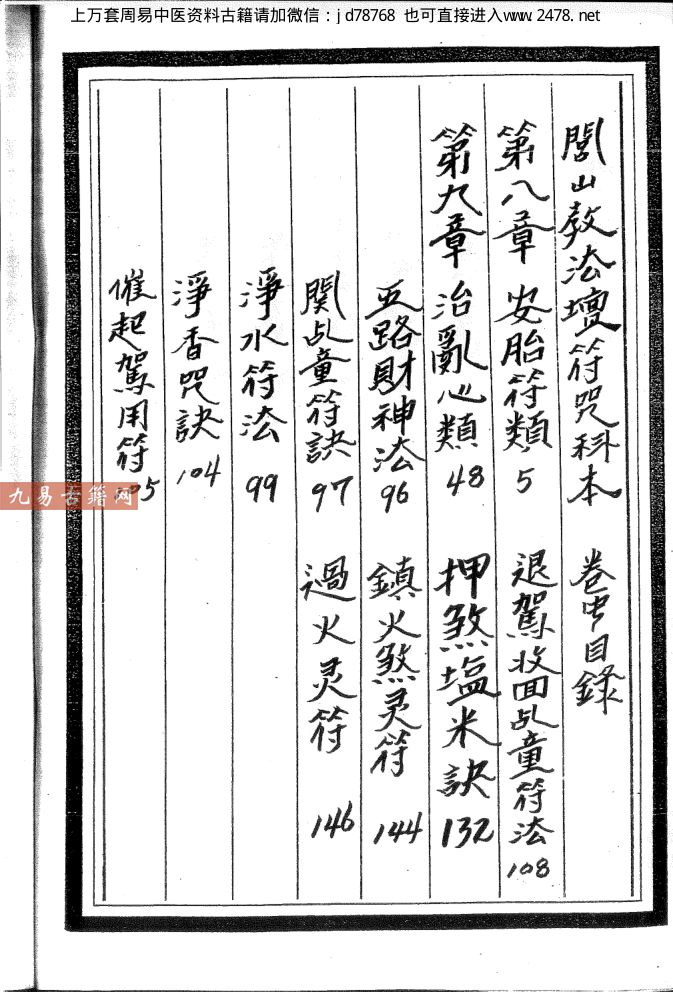 上万套周易中医资料古籍请加微信：jd78768 也可直接进入www.2478.net
閭山教法壇符咒科本 卷中目錄
第八章 安胎符類 5
退駕收回乩童符法 108
第九章 治亂心類 48
押煞塩米訣 132
五路財神法 96
鎮火煞灵符 144
関乩童符訣 97
過火灵符 146
淨水符法 99
淨香咒訣 104
催起駕用符 105
九易古籍网